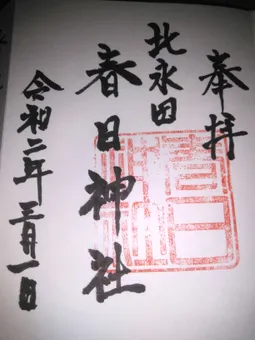 奉拝
北永田
春日神社
令和二年三月一日
春日
神社